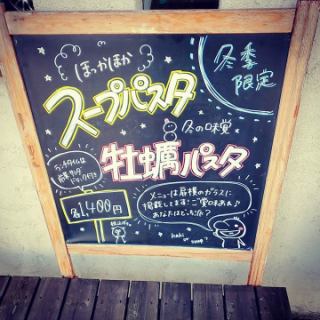 ほっかほか
冬季
限定
スープパスタ
冬の味覚
牡蠣パスタ
ランチタイムは
前菜サラダ
ドリンク付き
各1,400円
メニューは扉横のガラスに
掲載してます!ご覧になれ♪
あなたはどっち派?
kaki
or
soup?